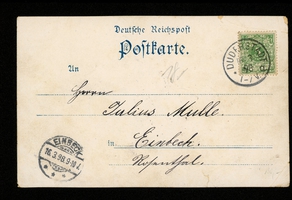 Deutsche Reichspost
Postkarte.
An
Herrn
Julius Mulle.
in Einbeck.
Rosenthal.
EINBECK
16.3.98.9-10V.